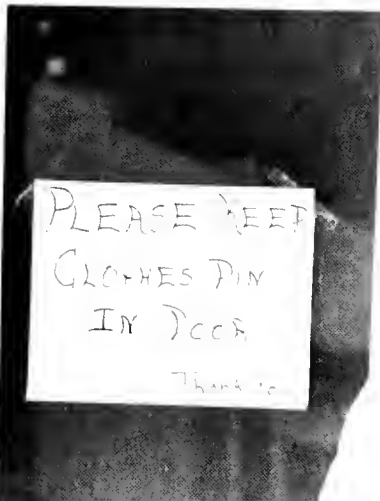 PLEASE KEEP
CLOTHES PIN
IN DOOR
Thank